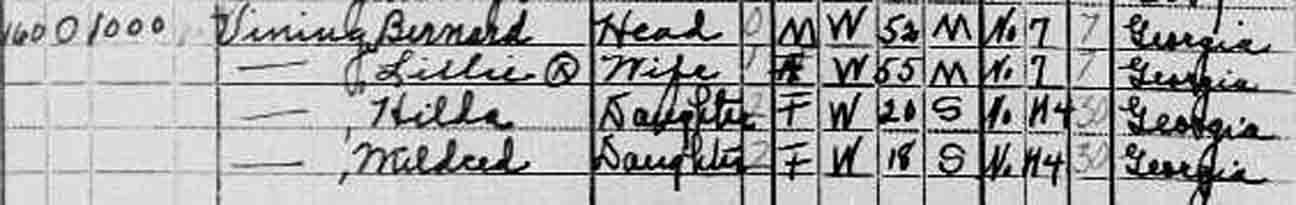 1600 1000 Vining, Bernard Head 0 M W 52 M No 7 7 Georgia
— , Lillie ⓧ Wife 1 F W 55 M No 7 7 Georgia
— , Hilda Daughter 2 F W 20 S No H4 30 Georgia
— , Mildred Daughter 2 F W 18 S No H4 30 Georgia